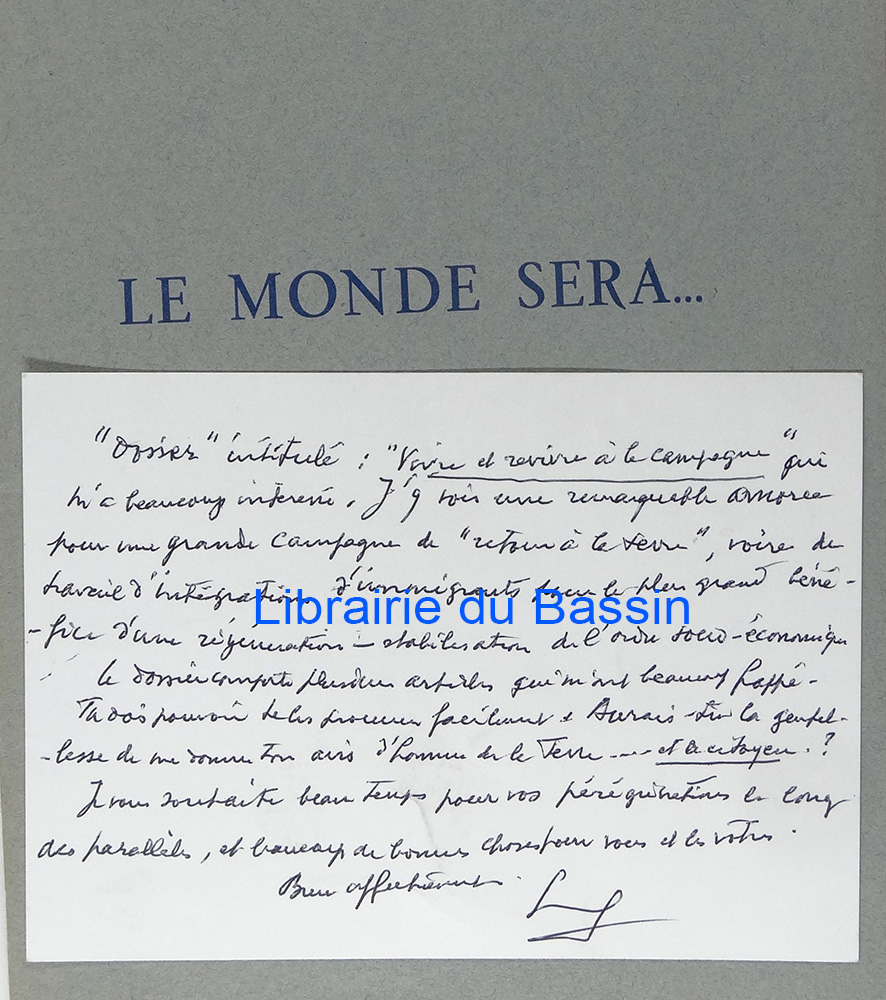 LE MONDE SERA...
"Dossier" intitulé : "Vivre et revivre à la campagne" qui
m'a beaucoup intéressé. J'y vois une remarquable amorce
pour une grande campagne de "retour à la terre", voire de
travail d'intégration d'immigrants pour le plus grand béné-
Librairie du Bassin
-fice d'une régénération - stabilisation de l'ordre socio-économique
le dossier comporte plusieurs articles qui m'ont beaucoup frappé.
Tu dois pouvoir te les procurer facilement & Aurais-tu la gentil-
-lesse de me donner ton avis d'homme de la Terre .... et de citoyen. ?
Je vous souhaite beau temps pour vos pérégrinations le long
des parallèles, et beaucoup de bonnes choses pour vous et les vôtres.
Bien affectueusement.